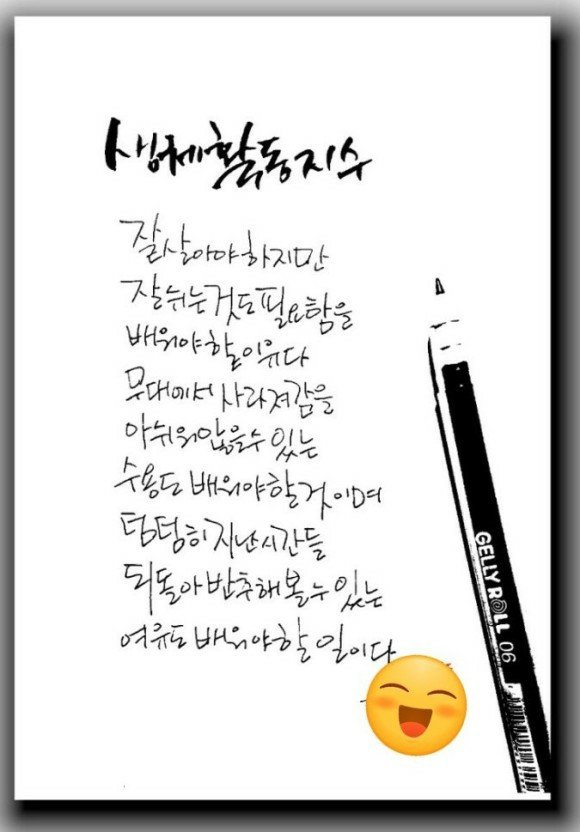 생체활동지수
잘 살아야 하지만
잘 쉬는 것도 필요함을
배워야 할 이유다
무대에서 사라져감을
아쉬워 않을 수 있는
수용도 배워야 할 것이며
덤덤히 지난 시간들
뒤돌아 반추해 볼 수 있는
여유도 배워야 할 일이다
GELLY ROLL 06